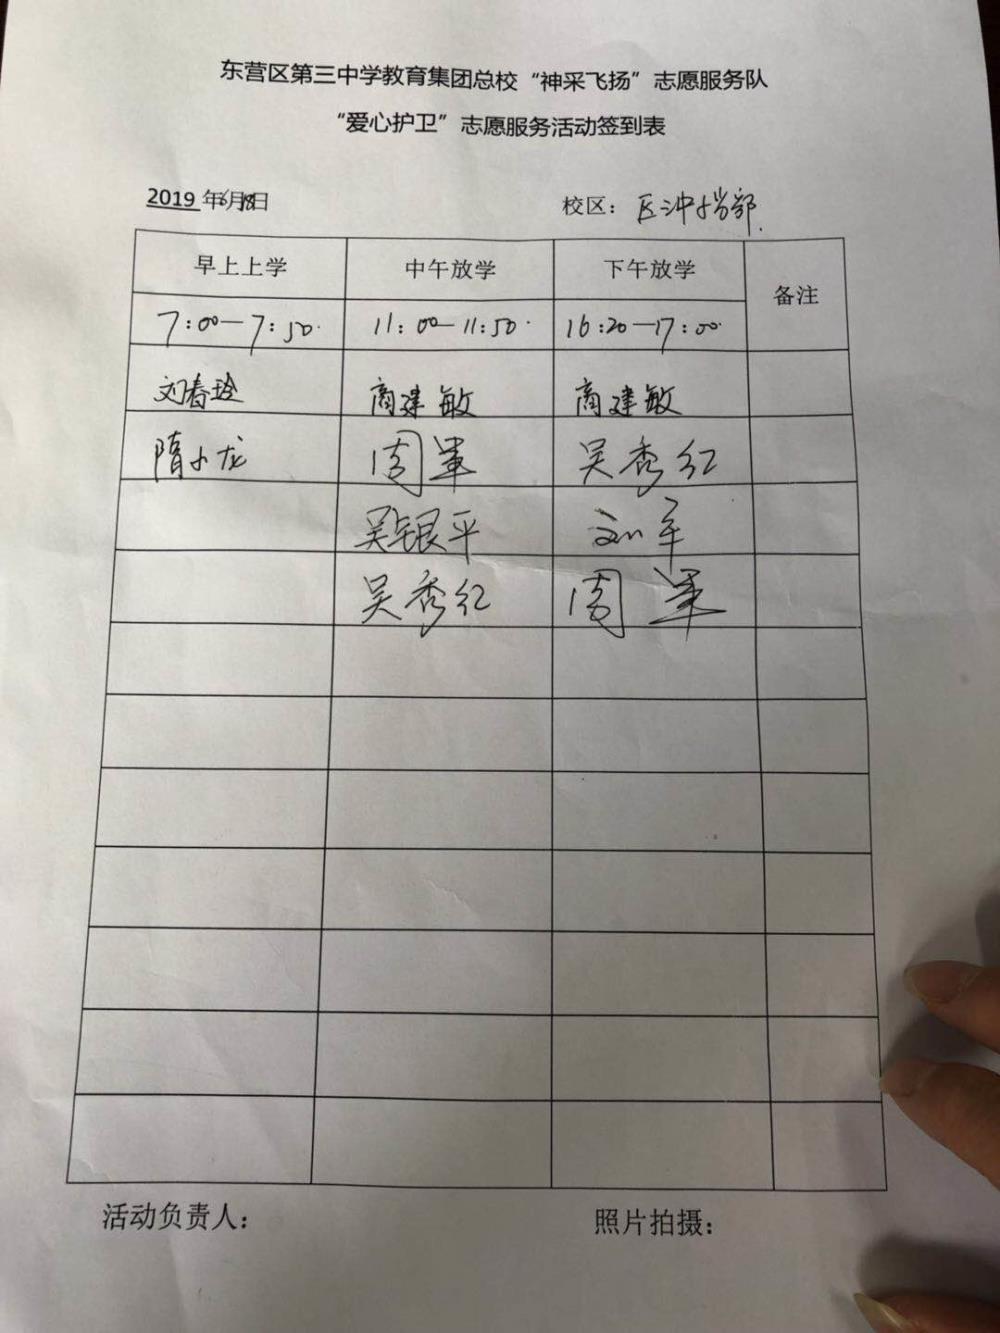 东营区第三中学教育集团总校“神采飞扬”志愿服务队
“爱心护卫”志愿服务活动签到表
2019年6月18日 校区：区三中小学部.
早上上学 中午放学 下午放学 备注
7:00—7:50. 11:00—11:50. 16:20—17:00.
刘春玲 商建敏 商建敏
隋小龙 周军 吴秀红
吴银平 刘军
吴秀红 周军
活动负责人： 照片拍摄：